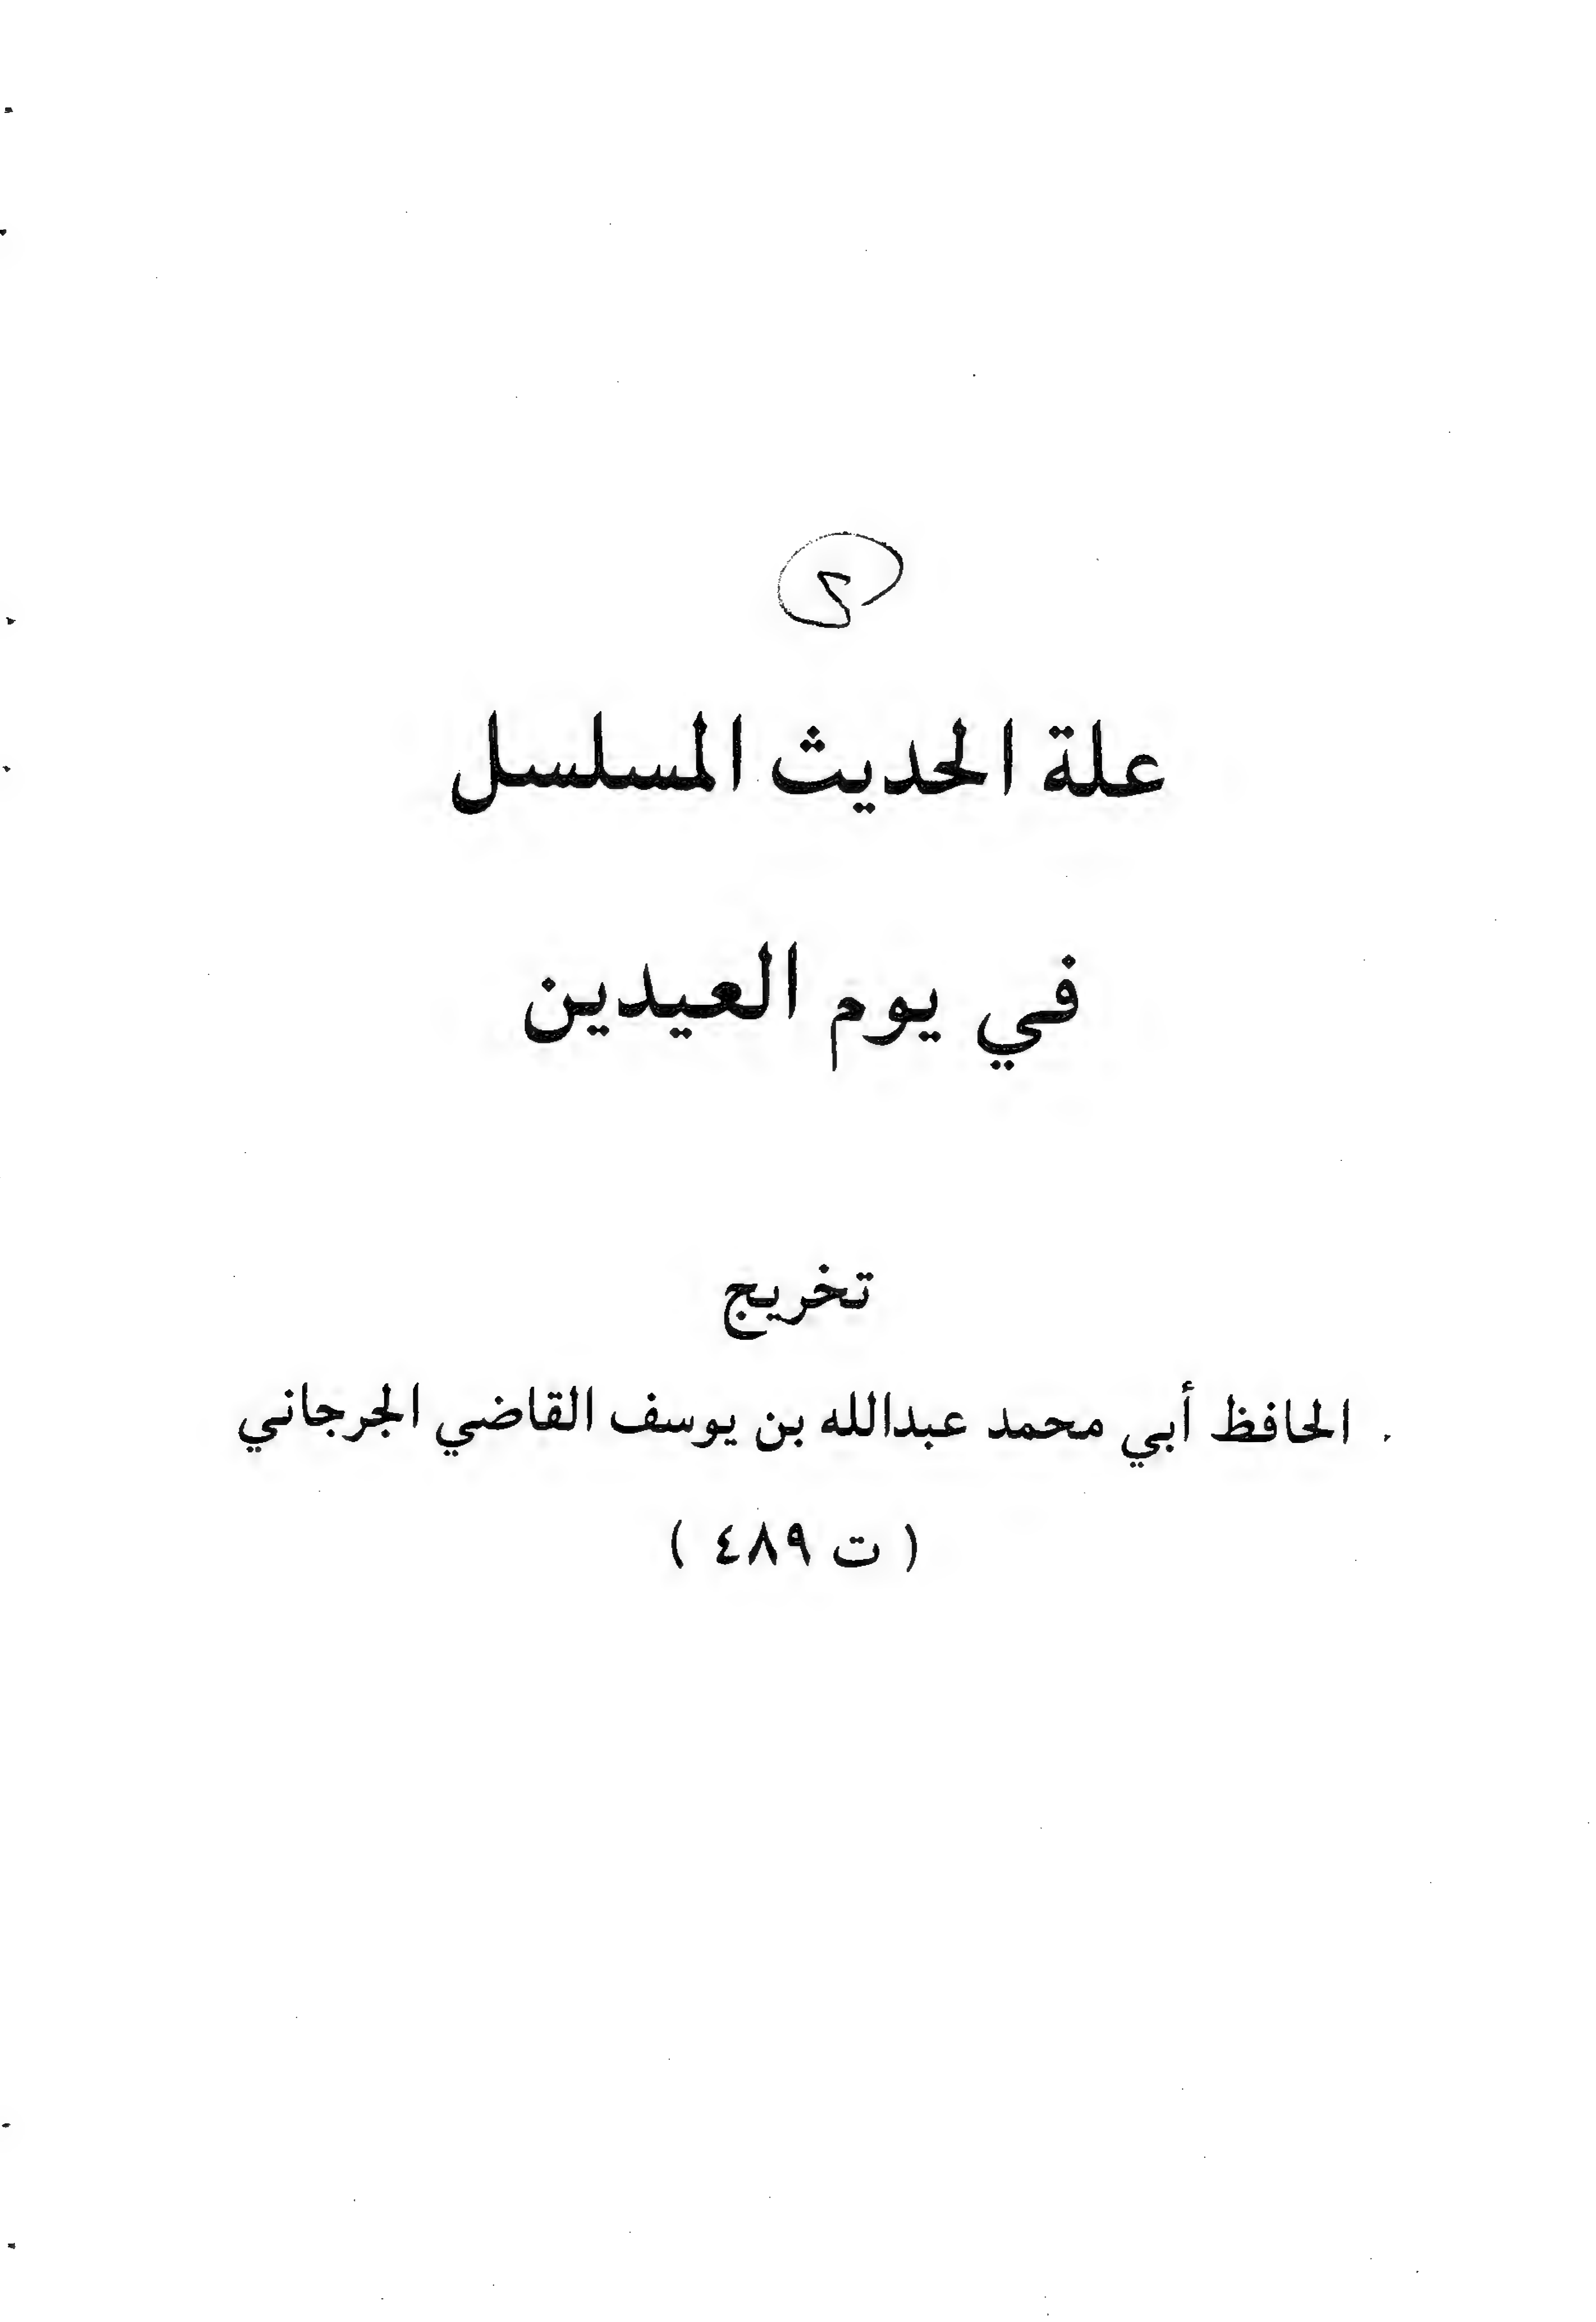 ٢
علة الحديث المسلسل
في يوم العيدين
تخريج
الحافظ أبي محمد عبدالله بن يوسف القاضي الجرجاني
( ت ٤٨٩ )